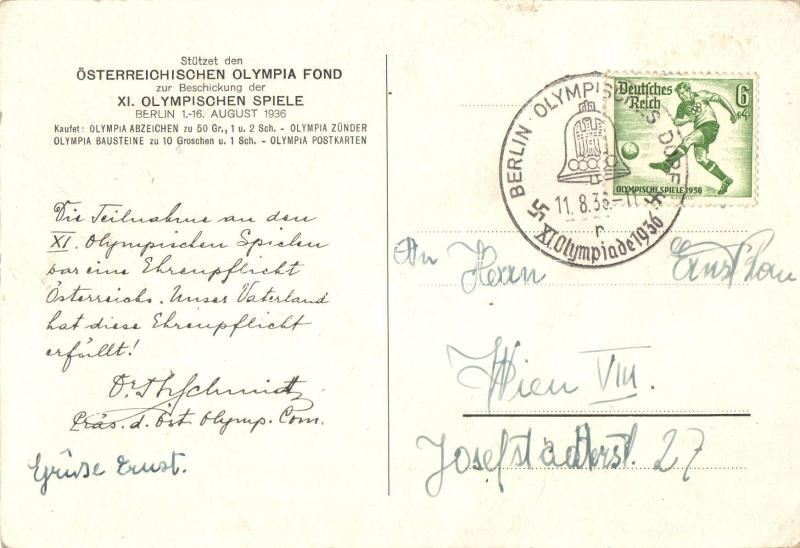 Stützet den
ÖSTERREICHISCHEN OLYMPIA FOND
zur Beschickung der
XI. OLYMPISCHEN SPIELE
BERLIN 1.-16. AUGUST 1936
Kaufet: OLYMPIA ABZEICHEN zu 50 Gr., 1 u. 2 Sch. - OLYMPIA ZÜNDER
OLYMPIA BAUSTEINE zu 10 Groschen u. 1 Sch. - OLYMPIA POSTKARTEN
Die Teilnahme an den
XI. Olympischen Spielen
war eine Ehrenpflicht
Österreichs. Unser Vaterland
hat diese Ehrenpflicht
erfüllt!
Dr. Th Schmidt
Präs. d. Öst. Olymp. Com.
Grüße Ernst.
BERLIN · OLYMPISCHES DORF
11.8.36
XI. Olympiade 1936
Deutsches
Reich
6
+4
OLYMPISCHE SPIELE 1936
An Herrn Ernst
Wien VIII.
Josefstädterst. 27